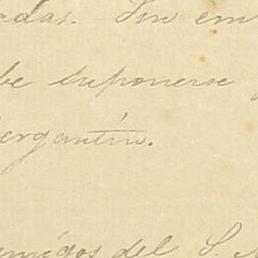 adas. Sin em
be suponerse
ergantín.
emigos del S.